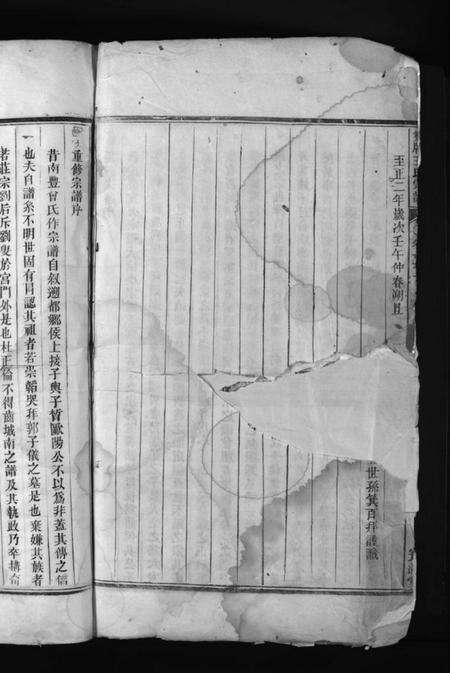 至正二年歲次壬午仲春朔旦
世孫箕百拜謹識
重修宗譜序
昔南豐曾氏作宗譜自叙遡都鄉侯上接子輿子晳歐陽公不以爲非蓋其傳之信
也夫自譜系不明世固有冒認其祖者若崇韜哭拜郭子儀之墓是也棄嫌其族者
若莊宗劉后斥劉叟於宮門外是也杜正倫不得齒城南之譜及其執政乃卒搆